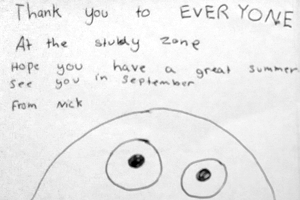 Thank you to EVERYONE
At the studdy zone
Hope you have a great summer
See you in September
From Nick